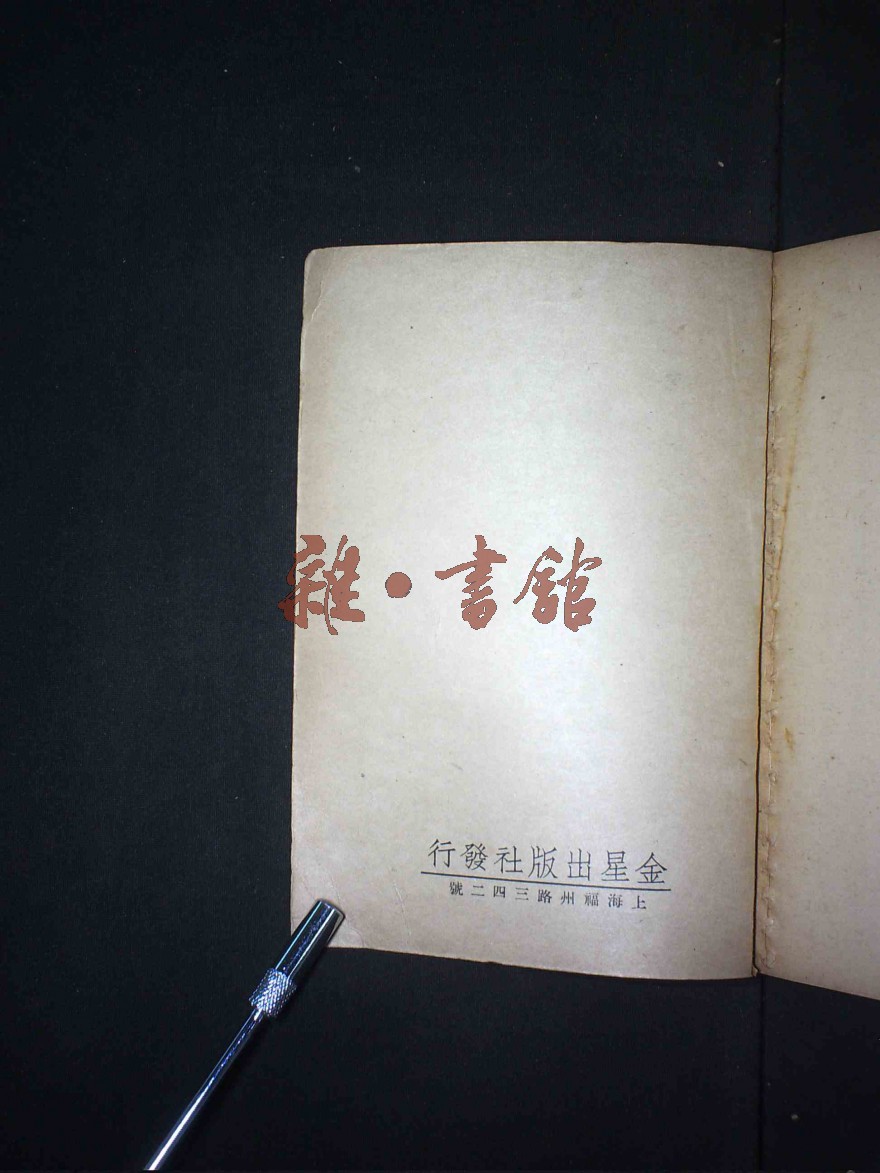 雜·書館
金星出版社發行
上海福州路三四二號